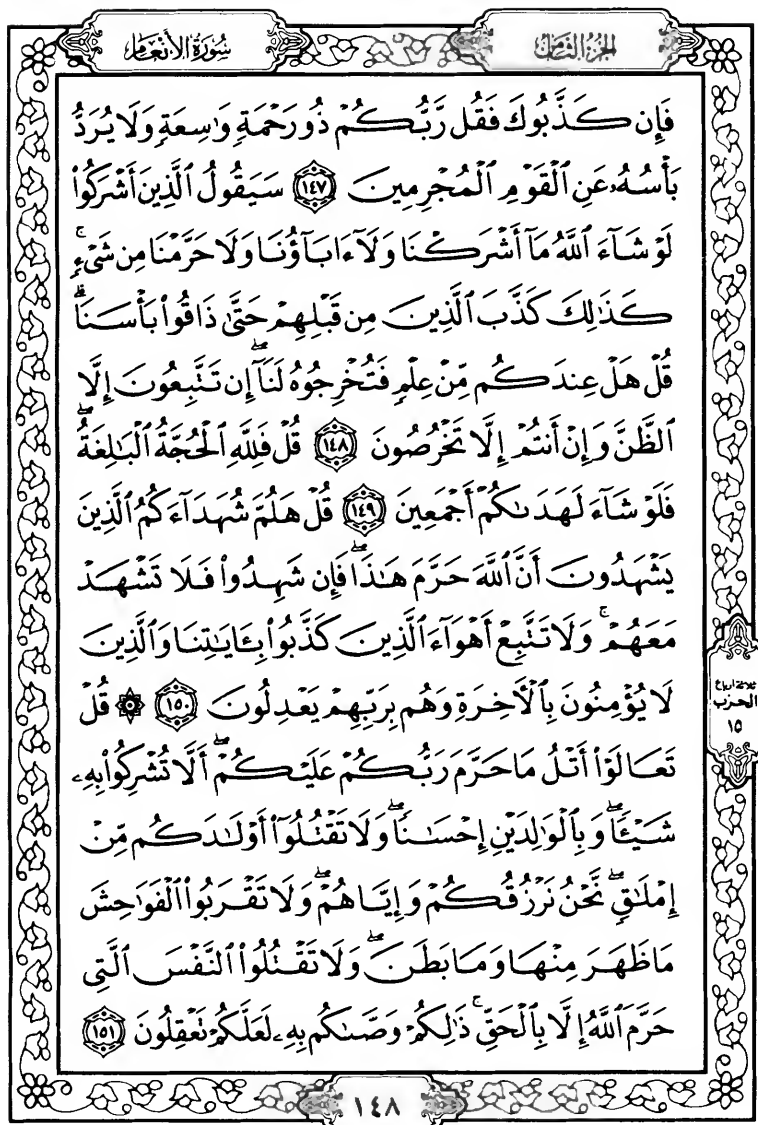 الجزء الثامن
سورة الأنعام
فَإِن كَذَّبُوكَ فَقُل رَّبُّكُمْ ذُو رَحْمَةٍ وَٰسِعَةٍ وَلَا يُرَدُّ
بَأْسُهُۥ عَنِ ٱلْقَوْمِ ٱلْمُجْرِمِينَ ١٤٧ سَيَقُولُ ٱلَّذِينَ أَشْرَكُوا۟
لَوْ شَآءَ ٱللَّهُ مَآ أَشْرَكْنَا وَلَآ ءَابَآؤُنَا وَلَا حَرَّمْنَا مِن شَىْءٍ ۚ
كَذَٰلِكَ كَذَّبَ ٱلَّذِينَ مِن قَبْلِهِمْ حَتَّىٰ ذَاقُوا۟ بَأْسَنَا ۗ
قُلْ هَلْ عِندَكُم مِّنْ عِلْمٍ فَتُخْرِجُوهُ لَنَآ ۖ إِن تَتَّبِعُونَ إِلَّا
ٱلظَّنَّ وَإِنْ أَنتُمْ إِلَّا تَخْرُصُونَ ١٤٨ قُلْ فَلِلَّهِ ٱلْحُجَّةُ ٱلْبَٰلِغَةُ ۖ
فَلَوْ شَآءَ لَهَدَىٰكُمْ أَجْمَعِينَ ١٤٩ قُلْ هَلُمَّ شُهَدَآءَكُمُ ٱلَّذِينَ
يَشْهَدُونَ أَنَّ ٱللَّهَ حَرَّمَ هَٰذَا ۖ فَإِن شَهِدُوا۟ فَلَا تَشْهَدْ
مَعَهُمْ ۚ وَلَا تَتَّبِعْ أَهْوَآءَ ٱلَّذِينَ كَذَّبُوا۟ بِـَٔايَٰتِنَا وَٱلَّذِينَ
لَا يُؤْمِنُونَ بِٱلْـَٔاخِرَةِ وَهُم بِرَبِّهِمْ يَعْدِلُونَ ١٥٠ ۞ قُلْ
تَعَالَوْا۟ أَتْلُ مَا حَرَّمَ رَبُّكُمْ عَلَيْكُمْ ۖ أَلَّا تُشْرِكُوا۟ بِهِۦ
شَيْـًٔا ۖ وَبِٱلْوَٰلِدَيْنِ إِحْسَٰنًا ۖ وَلَا تَقْتُلُوٓا۟ أَوْلَٰدَكُم مِّنْ
إِمْلَٰقٍ ۖ نَّحْنُ نَرْزُقُكُمْ وَإِيَّاهُمْ ۖ وَلَا تَقْرَبُوا۟ ٱلْفَوَٰحِشَ
مَا ظَهَرَ مِنْهَا وَمَا بَطَنَ ۖ وَلَا تَقْتُلُوا۟ ٱلنَّفْسَ ٱلَّتِى
حَرَّمَ ٱللَّهُ إِلَّا بِٱلْحَقِّ ۚ ذَٰلِكُمْ وَصَّىٰكُم بِهِۦ لَعَلَّكُمْ تَعْقِلُونَ ١٥١
ثلاثة أرباع
الحزب
١٥
١٤٨